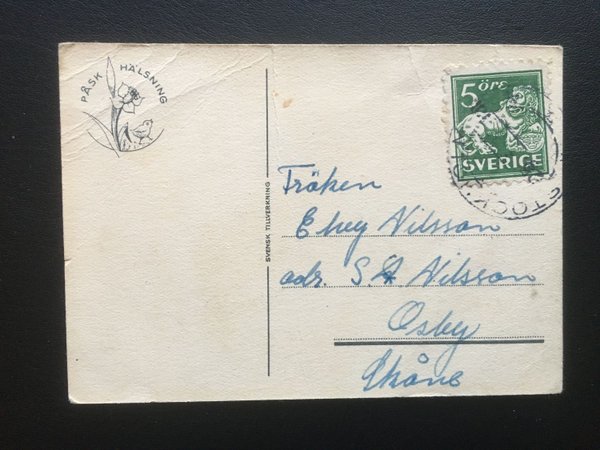 PÅSK HÄLSNING
5 ÖRE
SVERIGE
STOCK
SVENSK TILLVERKNING
Fröken
Nilsson
adr. S. A. Nilsson
Osby
Skåne